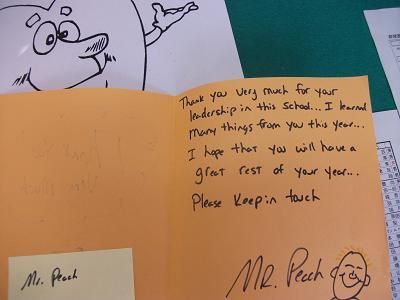 Thank you very much for your
leadership in this school... I learned
many things from you this year...
I hope that you will have a
great rest of your year...
Please Keep in touch
MR. Peach
Mr. Peach